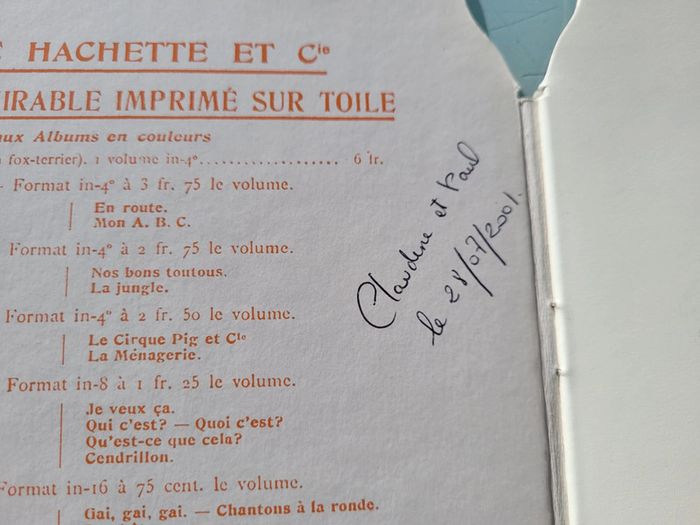 HACHETTE ET Cie
IRABLE IMPRIMÉ SUR TOILE
ux Albums en couleurs
fox-terrier). 1 volume in-4º.................. 6 fr.
- Format in-4º à 3 fr. 75 le volume.
En route.
Mon A. B. C.
Format in-4º à 2 fr. 75 le volume.
Nos bons toutous.
La jungle.
Format in-4º à 2 fr. 50 le volume.
Le Cirque Pig et Cie
La Ménagerie.
Format in-8 à 1 fr. 25 le volume.
Je veux ça.
Qui c'est? — Quoi c'est?
Qu'est-ce que cela?
Cendrillon.
Format in-16 à 75 cent. le volume.
Gai, gai, gai. — Chantons à la ronde.
Claudine et Paul
le 28/07/2001.